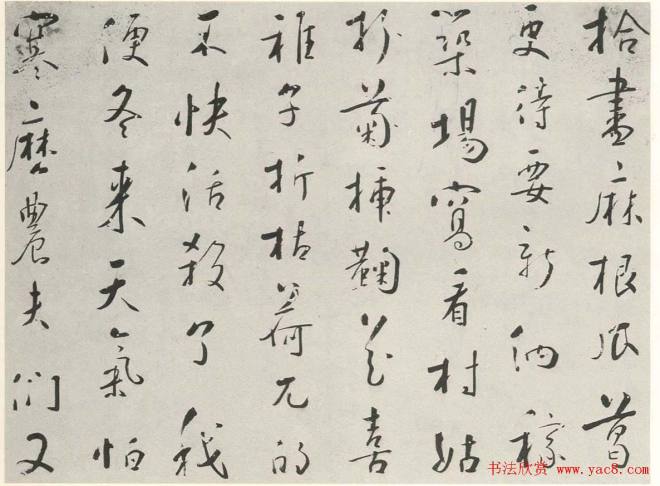 拾盡麻根瓜葛
更待要新納稼
築場窩看村姑
菊插鞠花喜
稚子折枯荷兀的
不快活殺了我
便冬來天氣怕
寒麼農夫們又
书法欣赏 www.yac8.com